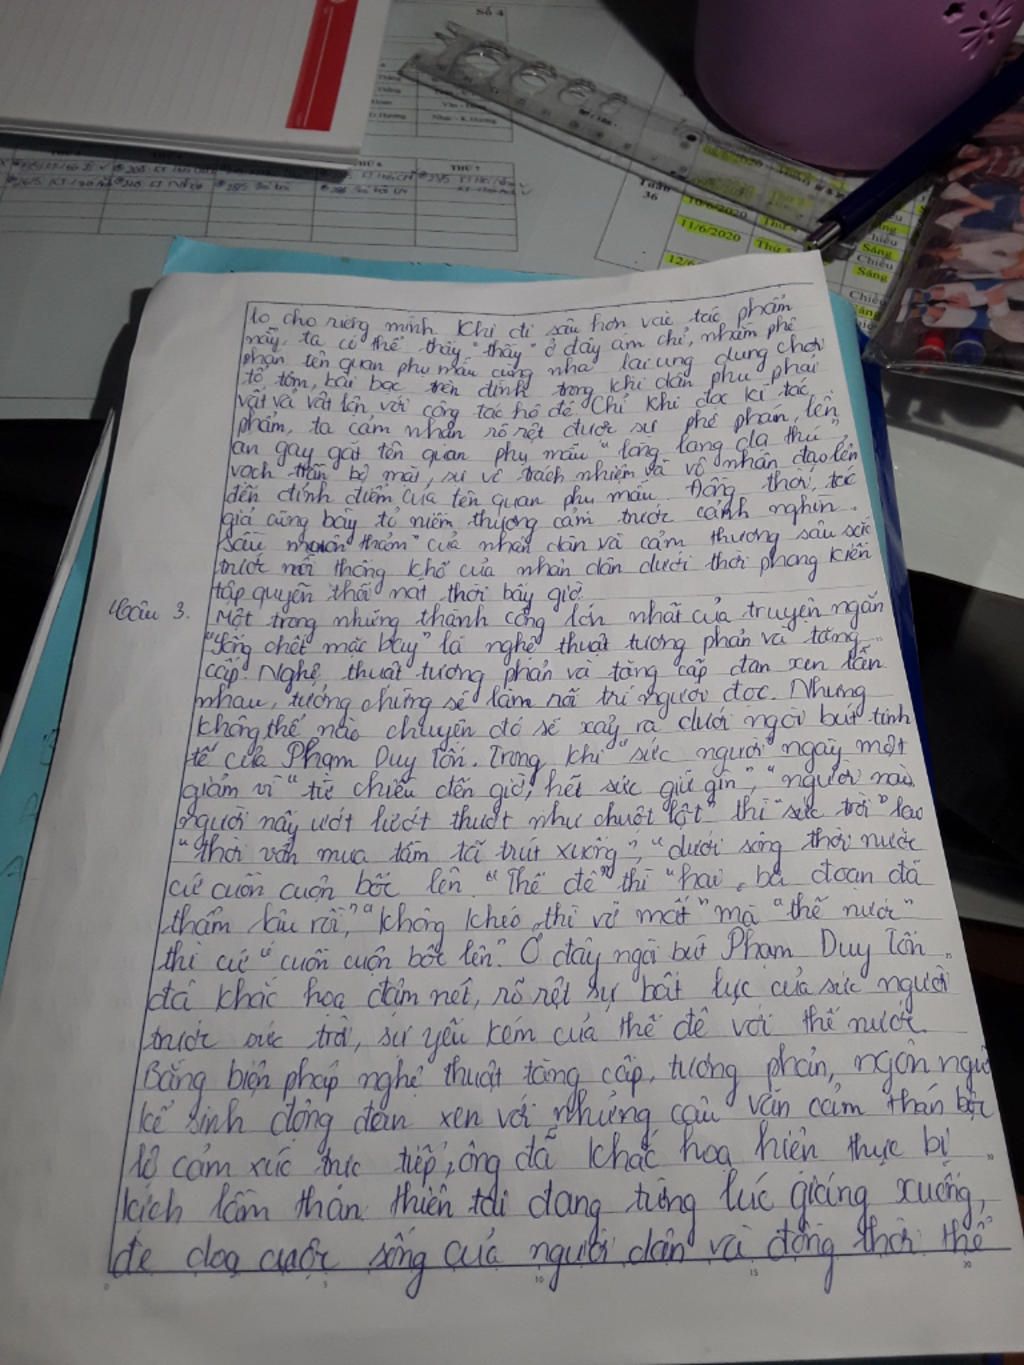 Số 4
Tuần
36
10/6/2020
11/6/2020
Thứ
Sáng
Chiều
Sáng
Chiều
Sáng
Chiều
THỨ 7
lo cho riêng mình. Khi đi sâu hơn vào tác phẩm
này, ta có thể thấy "thầy" ở đây ám chỉ, nhằm phê
phán tên quan phụ mẫu cùng nha lại ung dung chơi
tổ tôm, bài bạc trên đình trong khi dân phu phải
vất vả vật lộn với công tác hộ đê. Chỉ khi đọc kĩ tác
phẩm, ta cảm nhận rõ rệt được sự phê phán, lên
án gay gắt tên quan phụ mẫu "lòng lang dạ thú",
vạch trần bộ mặt, sự vô trách nhiệm và vô nhân đạo lên
đến đỉnh điểm của tên quan phụ mẫu. Đồng thời, tác
giả cũng bày tỏ niềm thương cảm trước cảnh "nghìn
sầu muôn thảm" của nhân dân và cảm thương sâu sắc
trước nỗi thống khổ của nhân dân dưới thời phong kiến
tập quyền thối nát thời bấy giờ.
Câu 3.
Một trong những thành công lớn nhất của truyện ngắn
"Sống chết mặc bay" là nghệ thuật tương phản và tăng
cấp. Nghệ thuật tương phản và tăng cấp đan xen lẫn
nhau, tưởng chừng sẽ làm rối trí người đọc. Nhưng
không thể nào chuyện đó sẽ xảy ra dưới ngòi bút tinh
tế của Phạm Duy Tốn. Trong khi "sức người" ngày một
giảm vì "từ chiều đến giờ, hết sức giữ gìn", "người nào
người nấy ướt lướt thướt như chuột lột" thì "sức trời" lại
"thời vẫn mưa tầm tã trút xuống", "dưới sông thời nước
cứ cuồn cuộn bốc lên". "Thế đê" thì "hai, ba đoạn đã
thẩm lậu rồi", "không khéo thì vỡ mất" mà "thế nước"
thì cứ "cuồn cuộn bốc lên". Ở đây ngòi bút Phạm Duy Tốn
đã khắc họa đậm nét, rõ rệt sự bất lực của sức người
trước sức trời, sự yếu kém của thế đê với thế nước.
Bằng biện pháp nghệ thuật tăng cấp, tương phản, ngôn ngữ
kể sinh động đan xen với những câu văn cảm thán bộc
lộ cảm xúc trực tiếp, ông đã khắc họa hiện thực bi
kịch lầm than: thiên tai đang từng lúc giáng xuống,
đe dọa cuộc sống của người dân và đồng thời thể
0 5 10 15 20